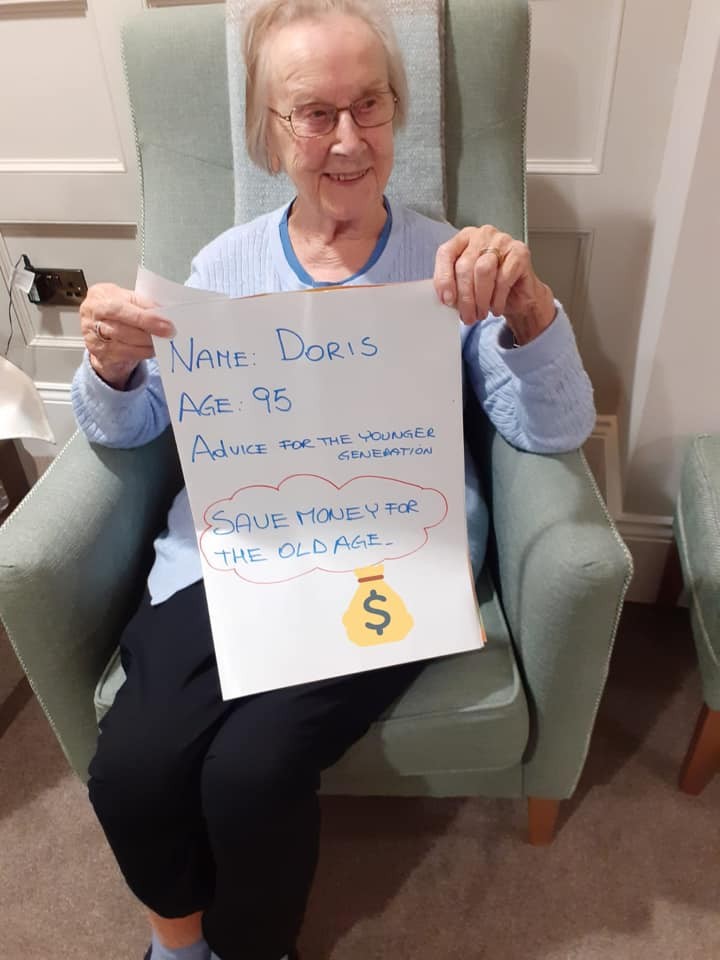 NAME: DORIS
AGE: 95
ADVICE FOR THE YOUNGER
GENERATION
SAVE MONEY FOR
THE OLD AGE_
$